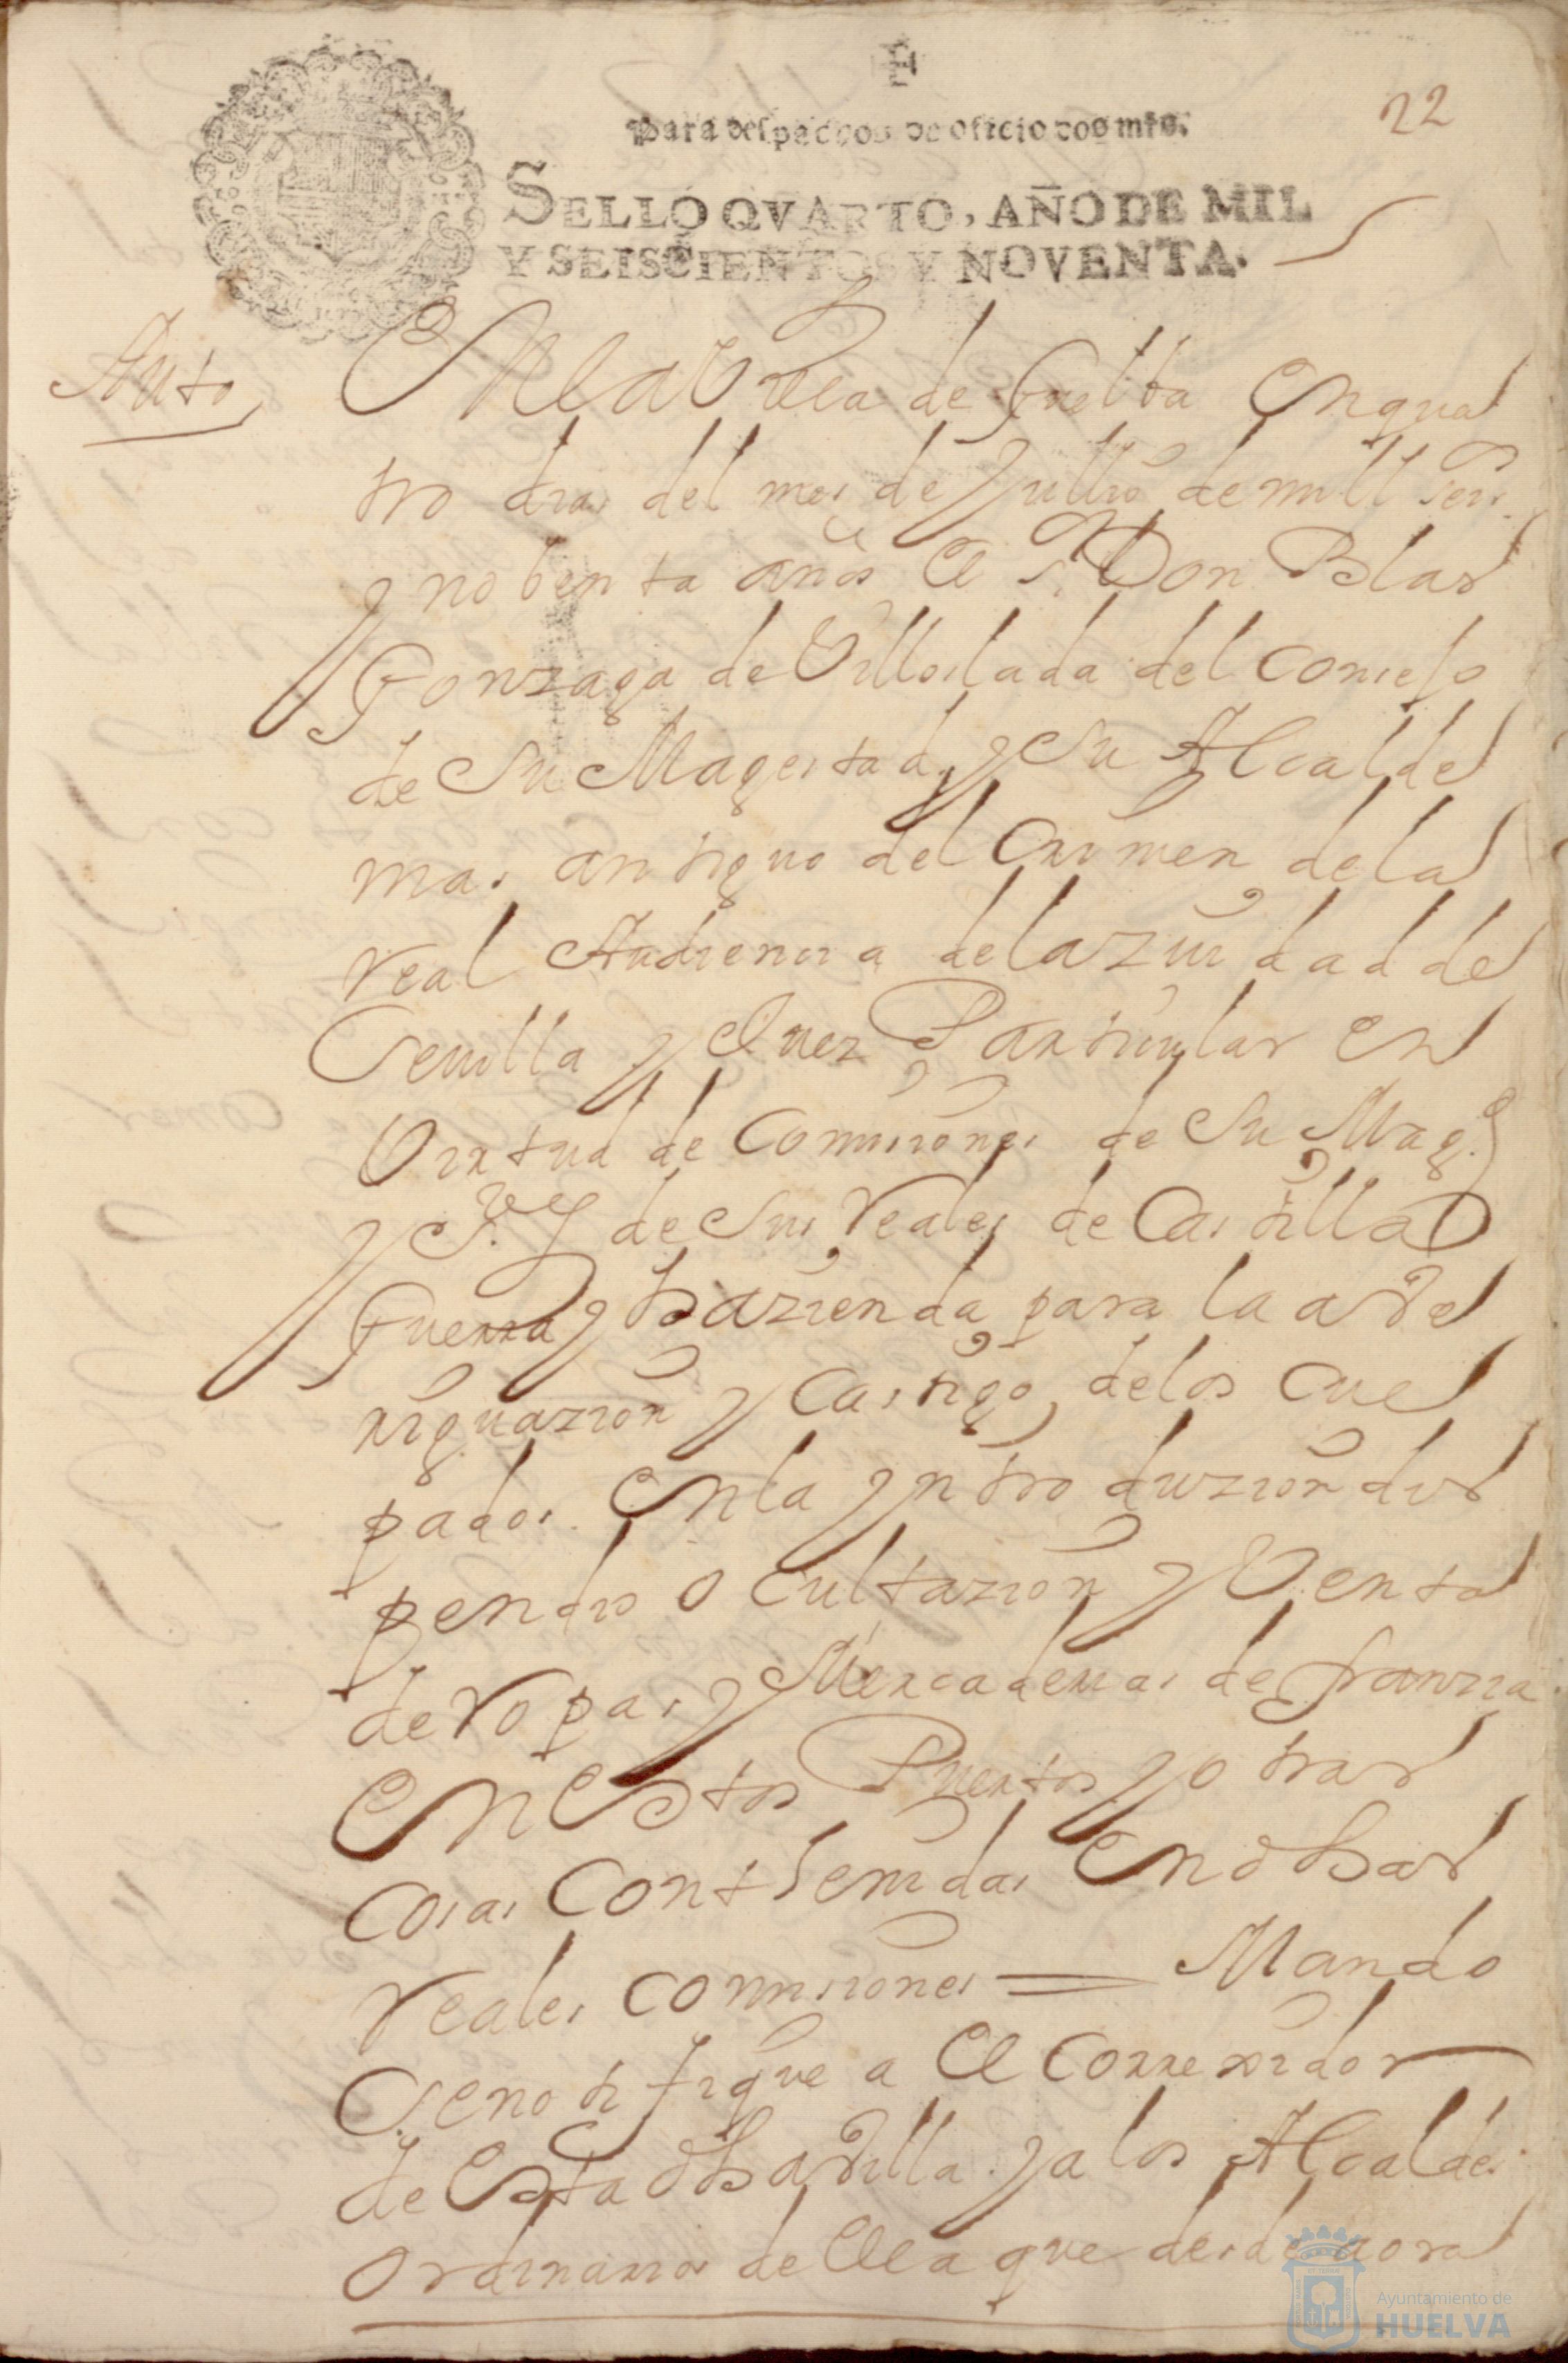 22
Para despachos de oficio dos mrs.
SELLO QVARTO, AÑO DE MIL
Y SEISCIENTOS Y NOVENTA.
Auto
En la Villa de Guelba en qua
tro dias del mes de Jullio de mill seis.
y nobenta años El Sr. Don Blas
Gonzaga de Villoslada del consejo
de Su Magestad y Su Alcalde
mas antiguo del Crimen de la
real Audiencia de la ziudad de
Sevilla y Juez Particular en
Virtud de Comisiones de Su Magd.
y Sres de Sus reales de Castilla
Guerra y hazienda para la abe
riguazion y Castigo de los cul
pados en la yntroduzion dis
pendio ocultazion y Venta
de ropas y Mercaderias de franzia
en Estos Puertos y otras
cosas Conthenidas en dhas
reales comisiones = Mando
Se notifique a El Correxidor
de Esta dha Villa y a los Alcaldes
ordinarios de Ella que desde aora
Ayuntamiento de
HUELVA